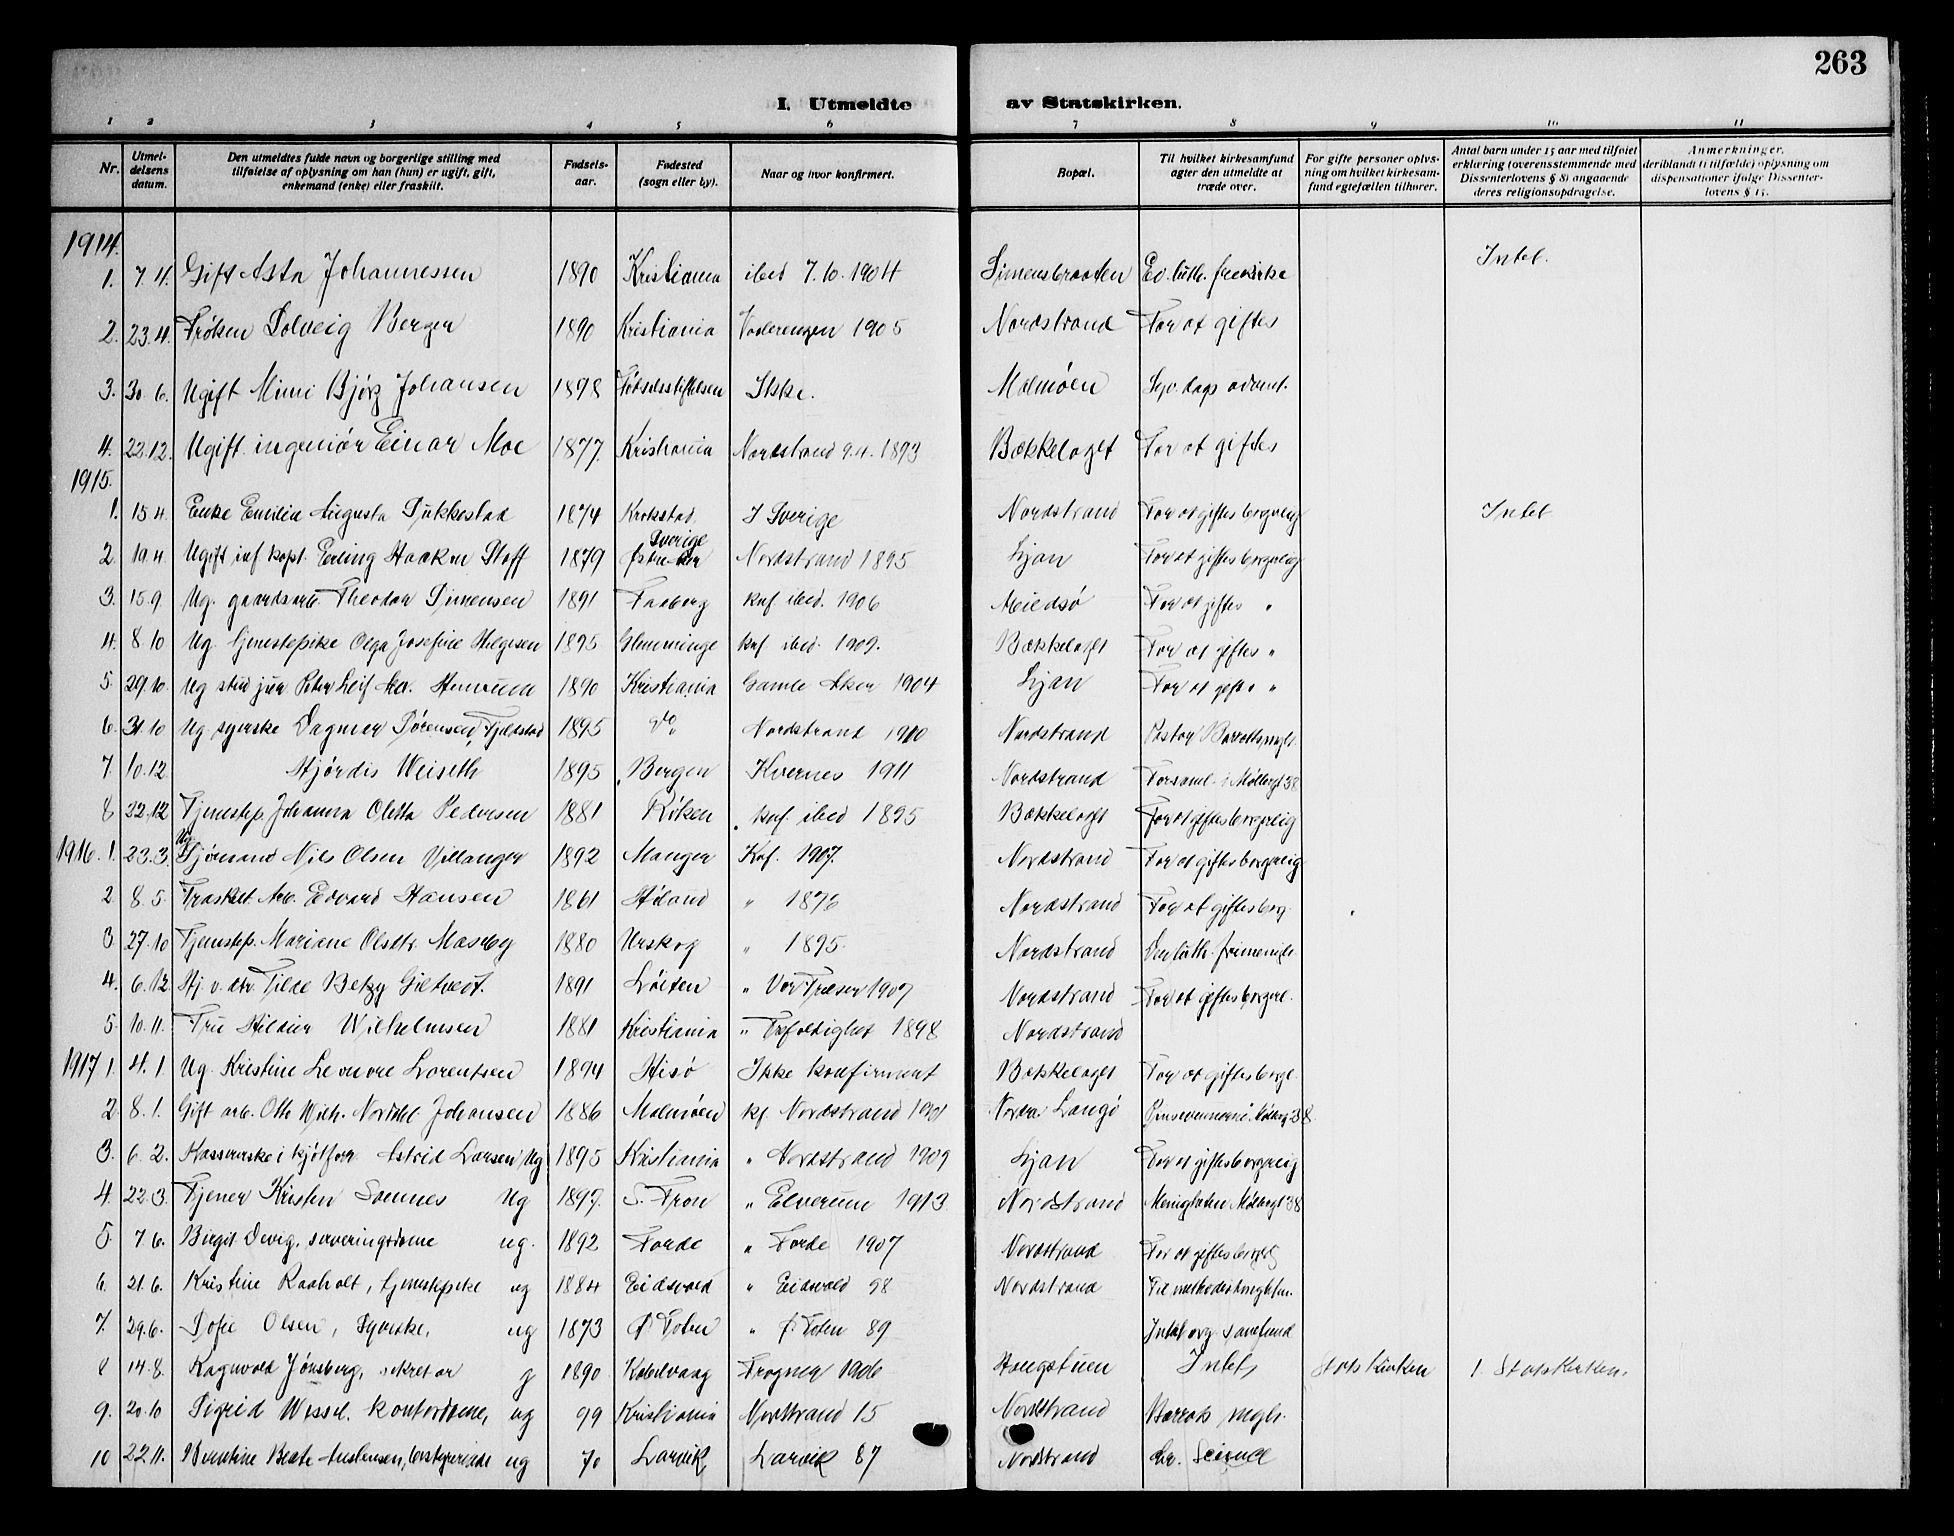 263
I. Utmeldte av Statskirken.
1 2 3 4 5 6 7 8 9 10 11
Nr. | Utmel-delsens datum. | Den utmeldtes fulde navn og borgerlige stilling med tilføielse af oplysning om han (hun) er ugift, gift, enkemand (enke) eller fraskilt. | Fødsels-aar. | Fødested (sogn eller by). | Naar og hvor konfirmert. | Bopæl. | Til hvilket kirkesamfund agter den utmeldte at træde over. | For gifte personer oplys-ning om hvilket kirkesam-fund egtefællen tilhører. | Antal barn under 15 aar med tilføiet erklæring (overensstemmende med Dissenterlovens § 8) angaaende deres religionsopdragelse. | Anmerkninger, deriblandt (i tilfælde) oplysning om dispensationer ifølge Dissenter-lovens § 15.
1914.
1. 7.4. Gift Asta Johannessen 1890 Kristiania ibed 7.10.1904 Simensbraaten Ev. luth. frikirke Intet.
2. 23.4. Frøken Solveig Berger 1890 Kristiania Vaalerengen 1905 Nordstrand For at giftes
3. 30.6. Ugift Mimi Bjørg Johansen 1898 Fødselsstiftelsen Ikke. Malmøen Syv. dags advent.
4. 22.12. Ugift ingeniør Einar Moe 1877. Kristiania Nordstrand 9.4.1893 Bækkelaget For at giftes
1915.
1. 15.4. Enke Emilia Augusta 1874 Krokstad Sverige I Sverige Nordstrand For at giftes borgerlig Intet
2. 19.4. Ugift inf. kapt. Erling Haakon 1879 Nordstrand 1895 Ljan For at giftes borgerlig
3. 15.9 Ug. gaardsarb. Theodor Simensen 1891 Faaberg knf. ibed. 1906 For at giftes "
4. 8.10 Ug. tjenestepike Olga Josefine Helgesen 1895 Glemminge knf. ibed. 1909. Bækkelaget For at giftes "
5. 29.10. Ug stud jur Peter Leif 1890 Kristiania Gamle Aker 1904 Ljan For at giftes "
6. 31.10 Ug. syerske Dagmar Sørensen, Fjeldstad 1895 do. Nordstrand 1910 Nordstrand Pastor
7. 10.12. Hjørdis Weiseth 1895 Bergen Kvernes 1911 Nordstrand Forsaml. i Møllergt 38
8 22.12 Tjenestep. Johanna Oletta Pedersen 1881 Røken knf. ibed 1895 Bækkelaget For at giftes borgerlig
1916. 1. 23.3. Ug. Sjømand Nils Olsen Villanger 1892 Manger Knf. 1907. Nordstrand For at giftes borgerlig
2. 8.5. Fraskilt. Arb. Edvard Hansen 1861 Høland " 1876 Nordstrand For at giftes borg.
3. 27.10 Tjenestep. Mariane Olsdtr. 1880 Urskog " 1895. Nordstrand Den luth. frimenigh.
4. 6.12. Tilde Betzy 1891 Løiten " Vor Frelser 1907 Nordstrand For at giftes borgerl.
5. 10.11. Fru Wilhelmsen 1881 Kristiania " Trefoldighet 1898 Nordstrand
1917 1. 4.1. Ug. Kristine Leonore Lorentsen 1894 Hisø Ikke konfirmert Bækkelaget For at giftes borgl.
2. 8.1. Gift arb. Otto Wilh. Johansen 1886 Malmøen kf. Nordstrand 1901 Nordre Langø Pinsevennerne Møllergt 38.
3. 6.2. Kassererske i kjøtforr. Astrid Larsen Ug 1895 Kristiania " Nordstrand 1909 Ljan For at giftes borgerlig
4. 22.3. Tjener Kristen Ug 1897. S. Fron " Elverum 1913 Nordstrand Menigheten Møllergt 38
5. 7.6. Birgit serveringsdame ug. 1892 Førde " Førde 1907 Nordstrand For at giftes borgerl
6. 21.6. Kristine Raaholt, tjenestepike ug 1884 Eidsvold " Eidsvold 98 Nordstrand Til methodistmenigh.
7. 29.6. Sofie Olsen, Syerske. ug 1873 Ø. Toten " Ø. Toten 89 Intet org. samfund
8 14.8. Ragnvald Jønsberg, sekretær g 1890 Frogner 1906 Haugstuen Intet, Statskirken 1 Statskirken.
9. 20.10 Sigrid Wessel. kontordame, ug 99 Kristiania Nordstrand 15 Nordstrand
10 22.11. Beate ug 70 Larvik Larvik 87 Nordstrand Chr. Science